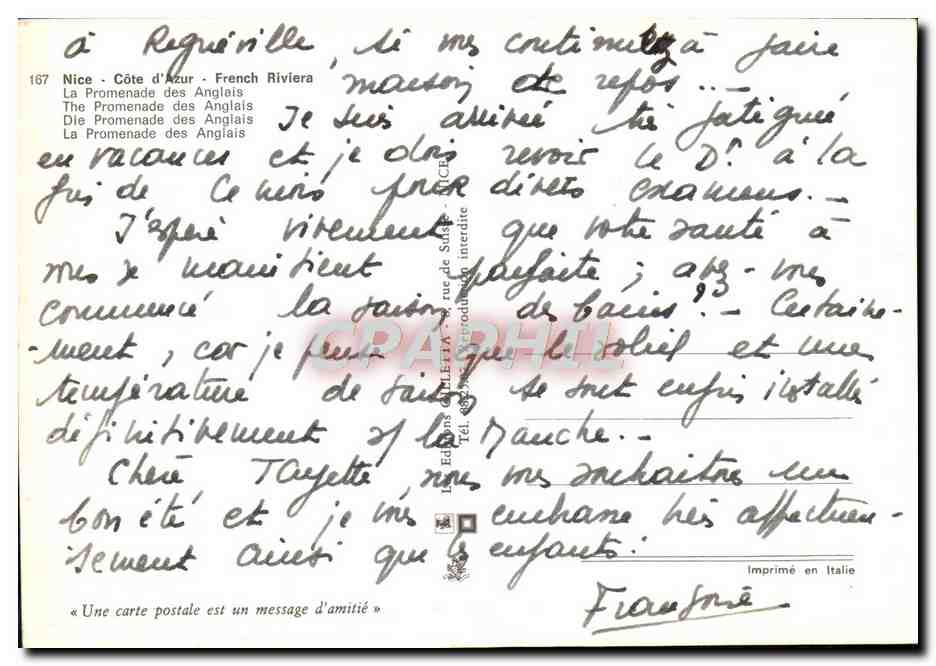 à Regnéville, si vous continuez à faire
167 Nice - Côte d'Azur - French Riviera
maison de repos...
La Promenade des Anglais
The Promenade des Anglais
Die Promenade des Anglais
La Promenade des Anglais
Je suis arrivée très fatiguée
en vacances et je dois revoir le Dr. à la
fin de ce mois pour divers examens..
J'espère vivement que votre santé à
vous se maintient parfaite ; avez-vous
commencé la saison des bains ? - Certaine-
-ment, car je pense que le soleil et une
température de saison se sont enfin installés
définitivement s/ la Manche..
Chère Tayette, nous vous souhaitons un
bon été et je vous embrasse très affectueu-
sement ainsi que les enfants.
Françoise
Les Editions GILLETTA - 8, rue de Suisse - NICE
Reproduction interdite
CPAPHIL
Imprimé en Italie
« Une carte postale est un message d'amitié »